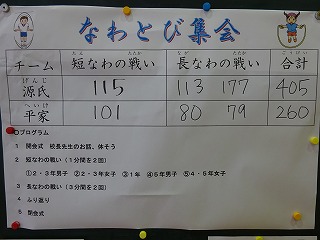 なわとび集会
チーム 短なわの戦い 長なわの戦い 合計
源氏 115 113 177 405
平家 101 80 79 260
〇プログラム
1 開会式 校長先生のお話、体そう
2 短なわの戦い(1分間を2回)
①2・3年男子 ②2・3年女子 ③1年 ④5年男子 ⑤4・5年女子
3 長なわの戦い(3分間を2回)
4 ふり返り
5 閉会式